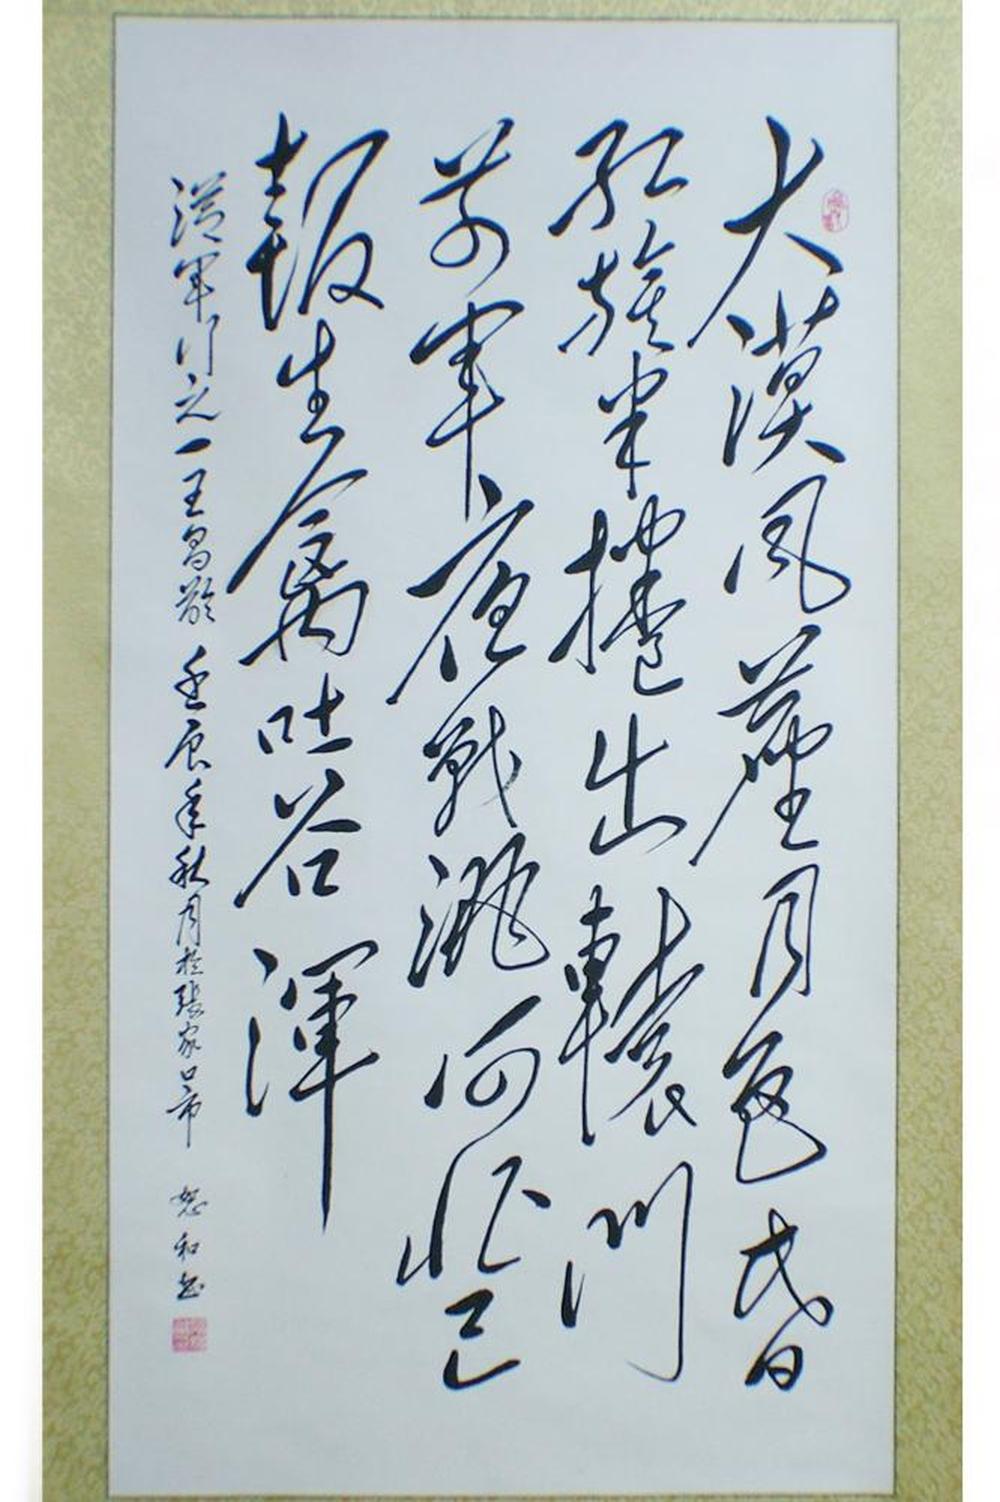 大漠風塵月色昏
紅旗半捲出轅門
前軍夜戰洮河北已
報生禽吐谷渾
從軍行之一王昌齡 壬辰年秋月於張家口市 恕和書